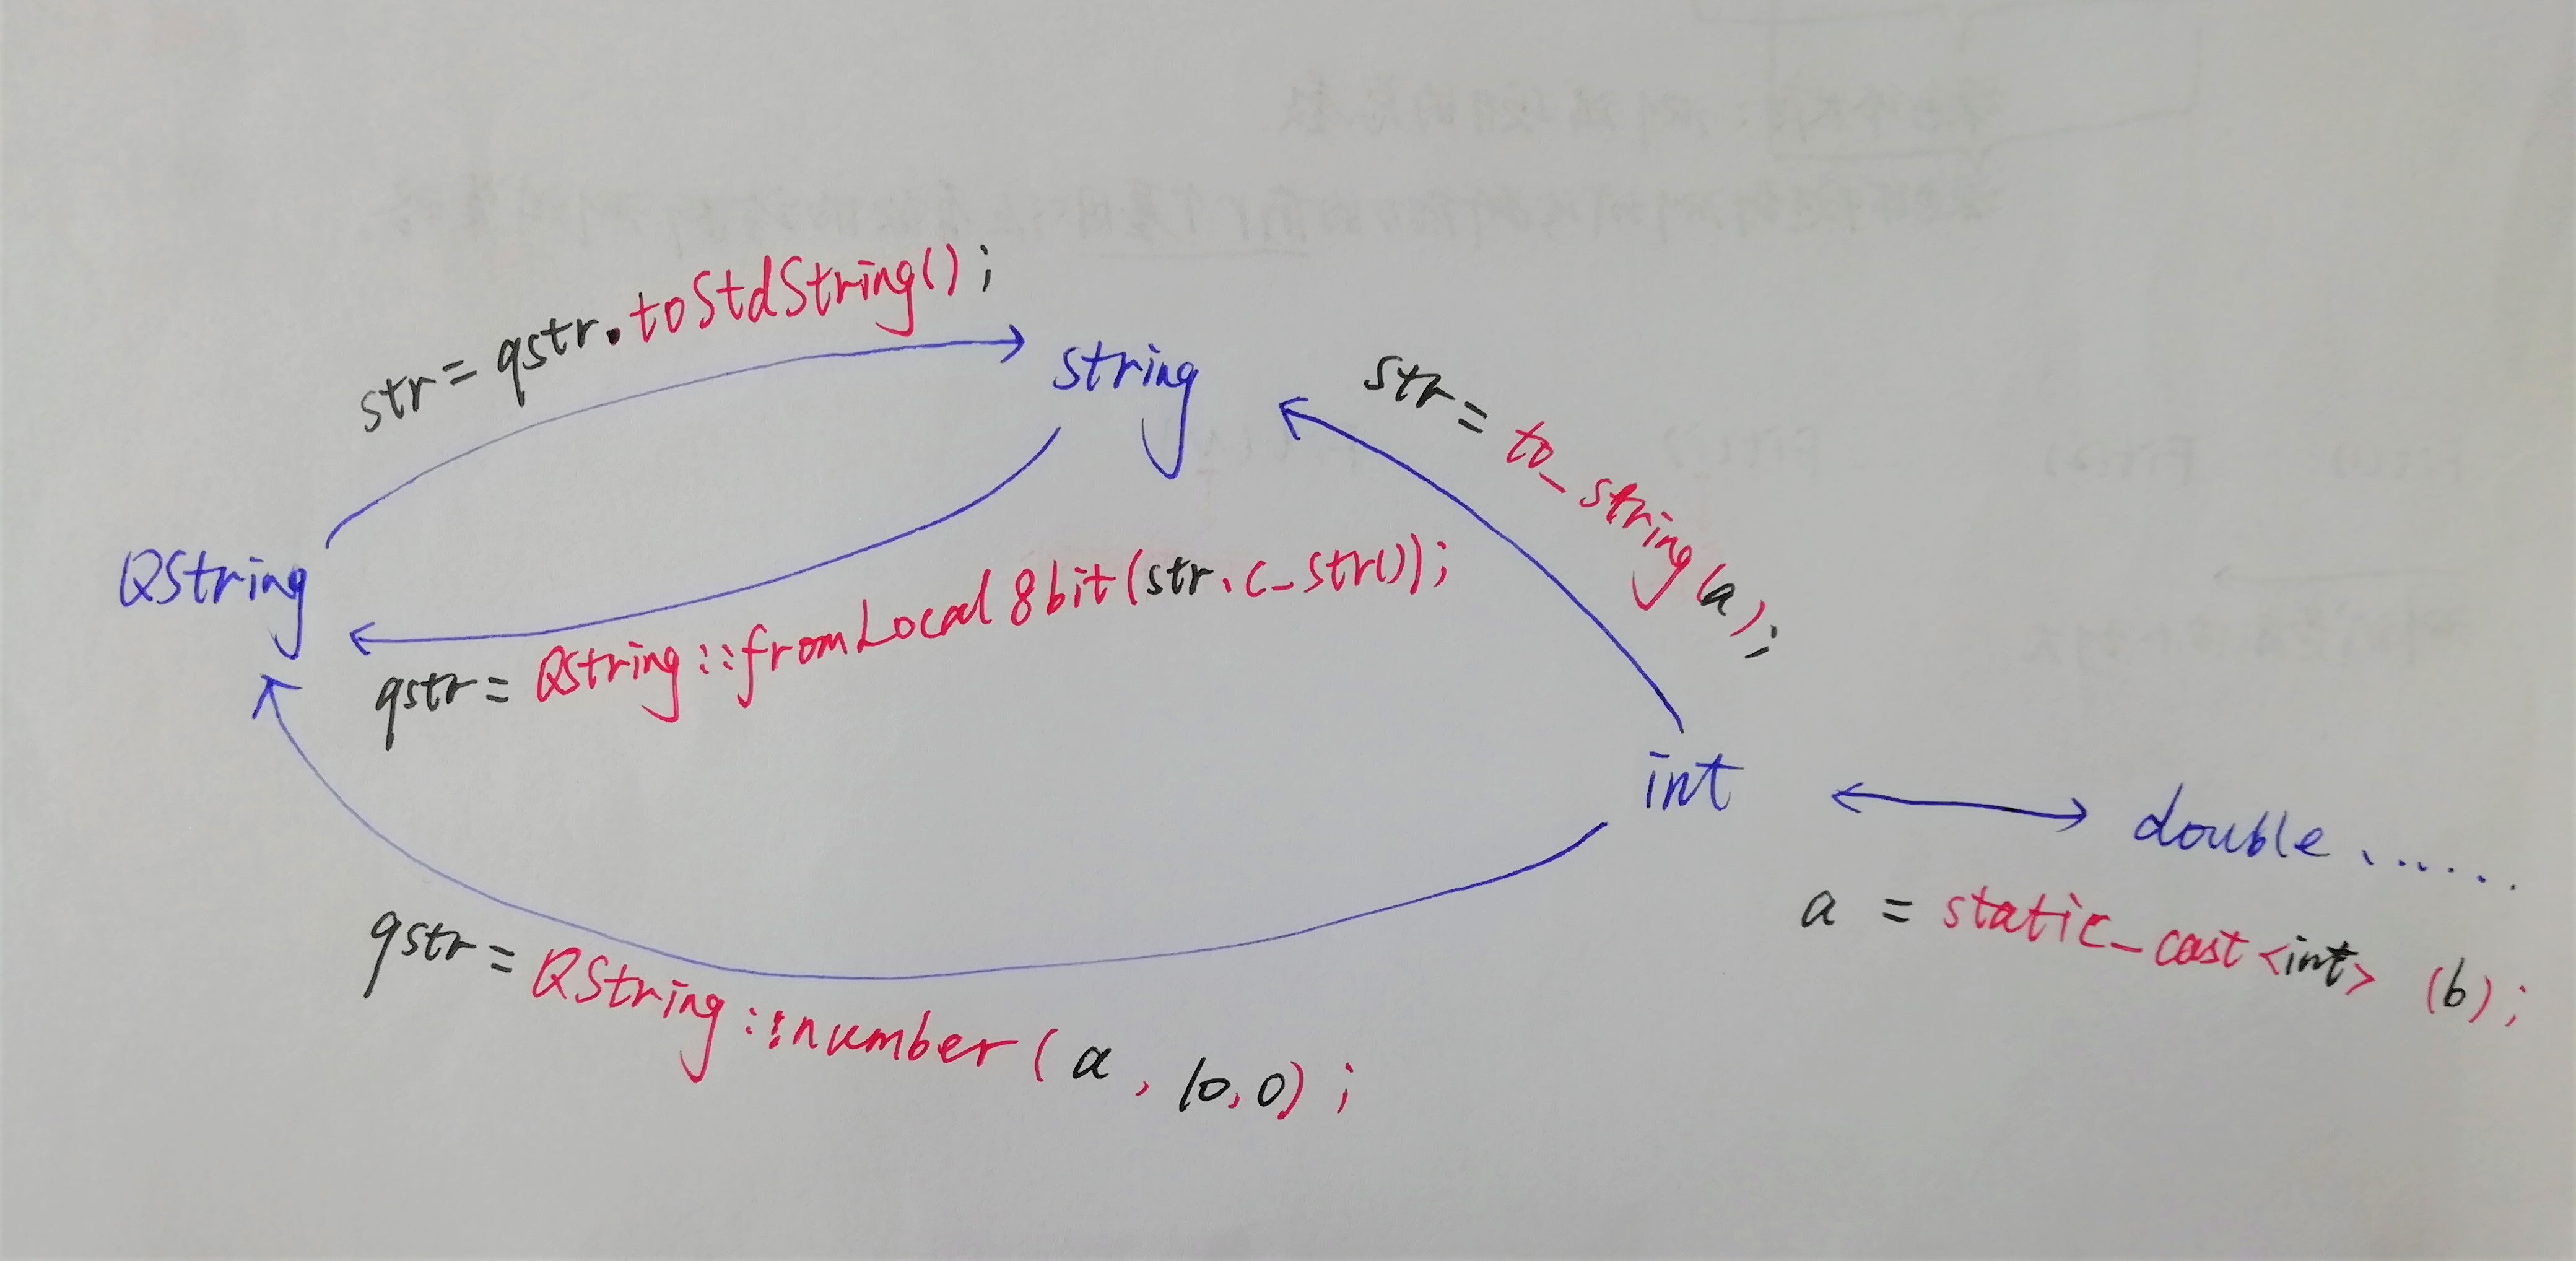 str = qstr.toStdString();
string
str = to_string(a);
QString
qstr = QString::fromLocal8bit(str.c_str());
int
double......
a = static_cast<int> (b);
qstr = QString::number(a, 10,0);